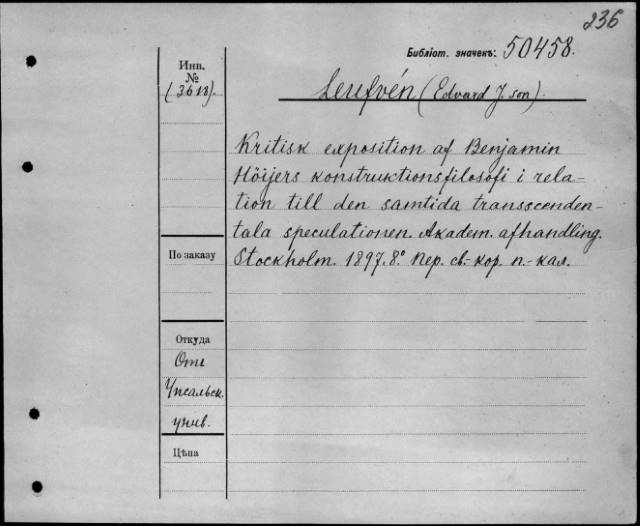 236
Библіот. значекъ: 50458.
Инв.
№
(3618).
Leufvén (Edvard J:son).
Kritisk exposition af Benjamin
Höijers konstruktionsfilosofi i rela-
tion till den samtida transscenden-
tala speculationen. Akadem. afhandling.
Stockholm. 1897. 8° Пер. св.-кор. п.-кал.
По заказу
Откуда
Отъ
Упсальск.
унив.
Цѣна